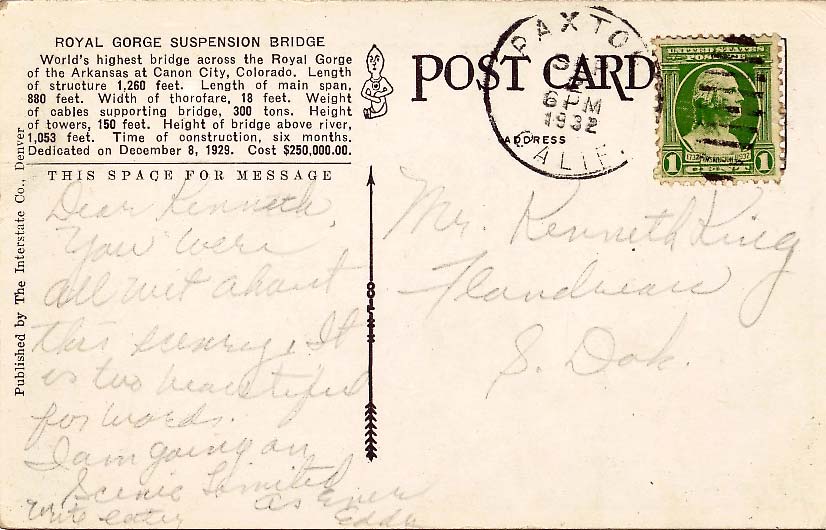 ROYAL GORGE SUSPENSION BRIDGE
World's highest bridge across the Royal Gorge
of the Arkansas at Canon City, Colorado. Length
of structure 1,260 feet. Length of main span,
880 feet. Width of thorofare, 18 feet. Weight
of cables supporting bridge, 300 tons. Height
of towers, 150 feet. Height of bridge above river,
1,053 feet. Time of construction, six months.
Dedicated on December 8, 1929. Cost $250,000.00.
THIS SPACE FOR MESSAGE
Published by The Interstate Co., Denver
Dear Kenneth,
You were
all wet about
this scenery. It
is too beautiful
for words.
I am going on
Scenic Limited
As Ever
Write later
POST CARD
ADDRESS
PAXTO
6 PM
1932
CALIF.
UNITED STATES
POSTAGE
1 1
Mr. Kenneth King
Flandreau
S. Dak.